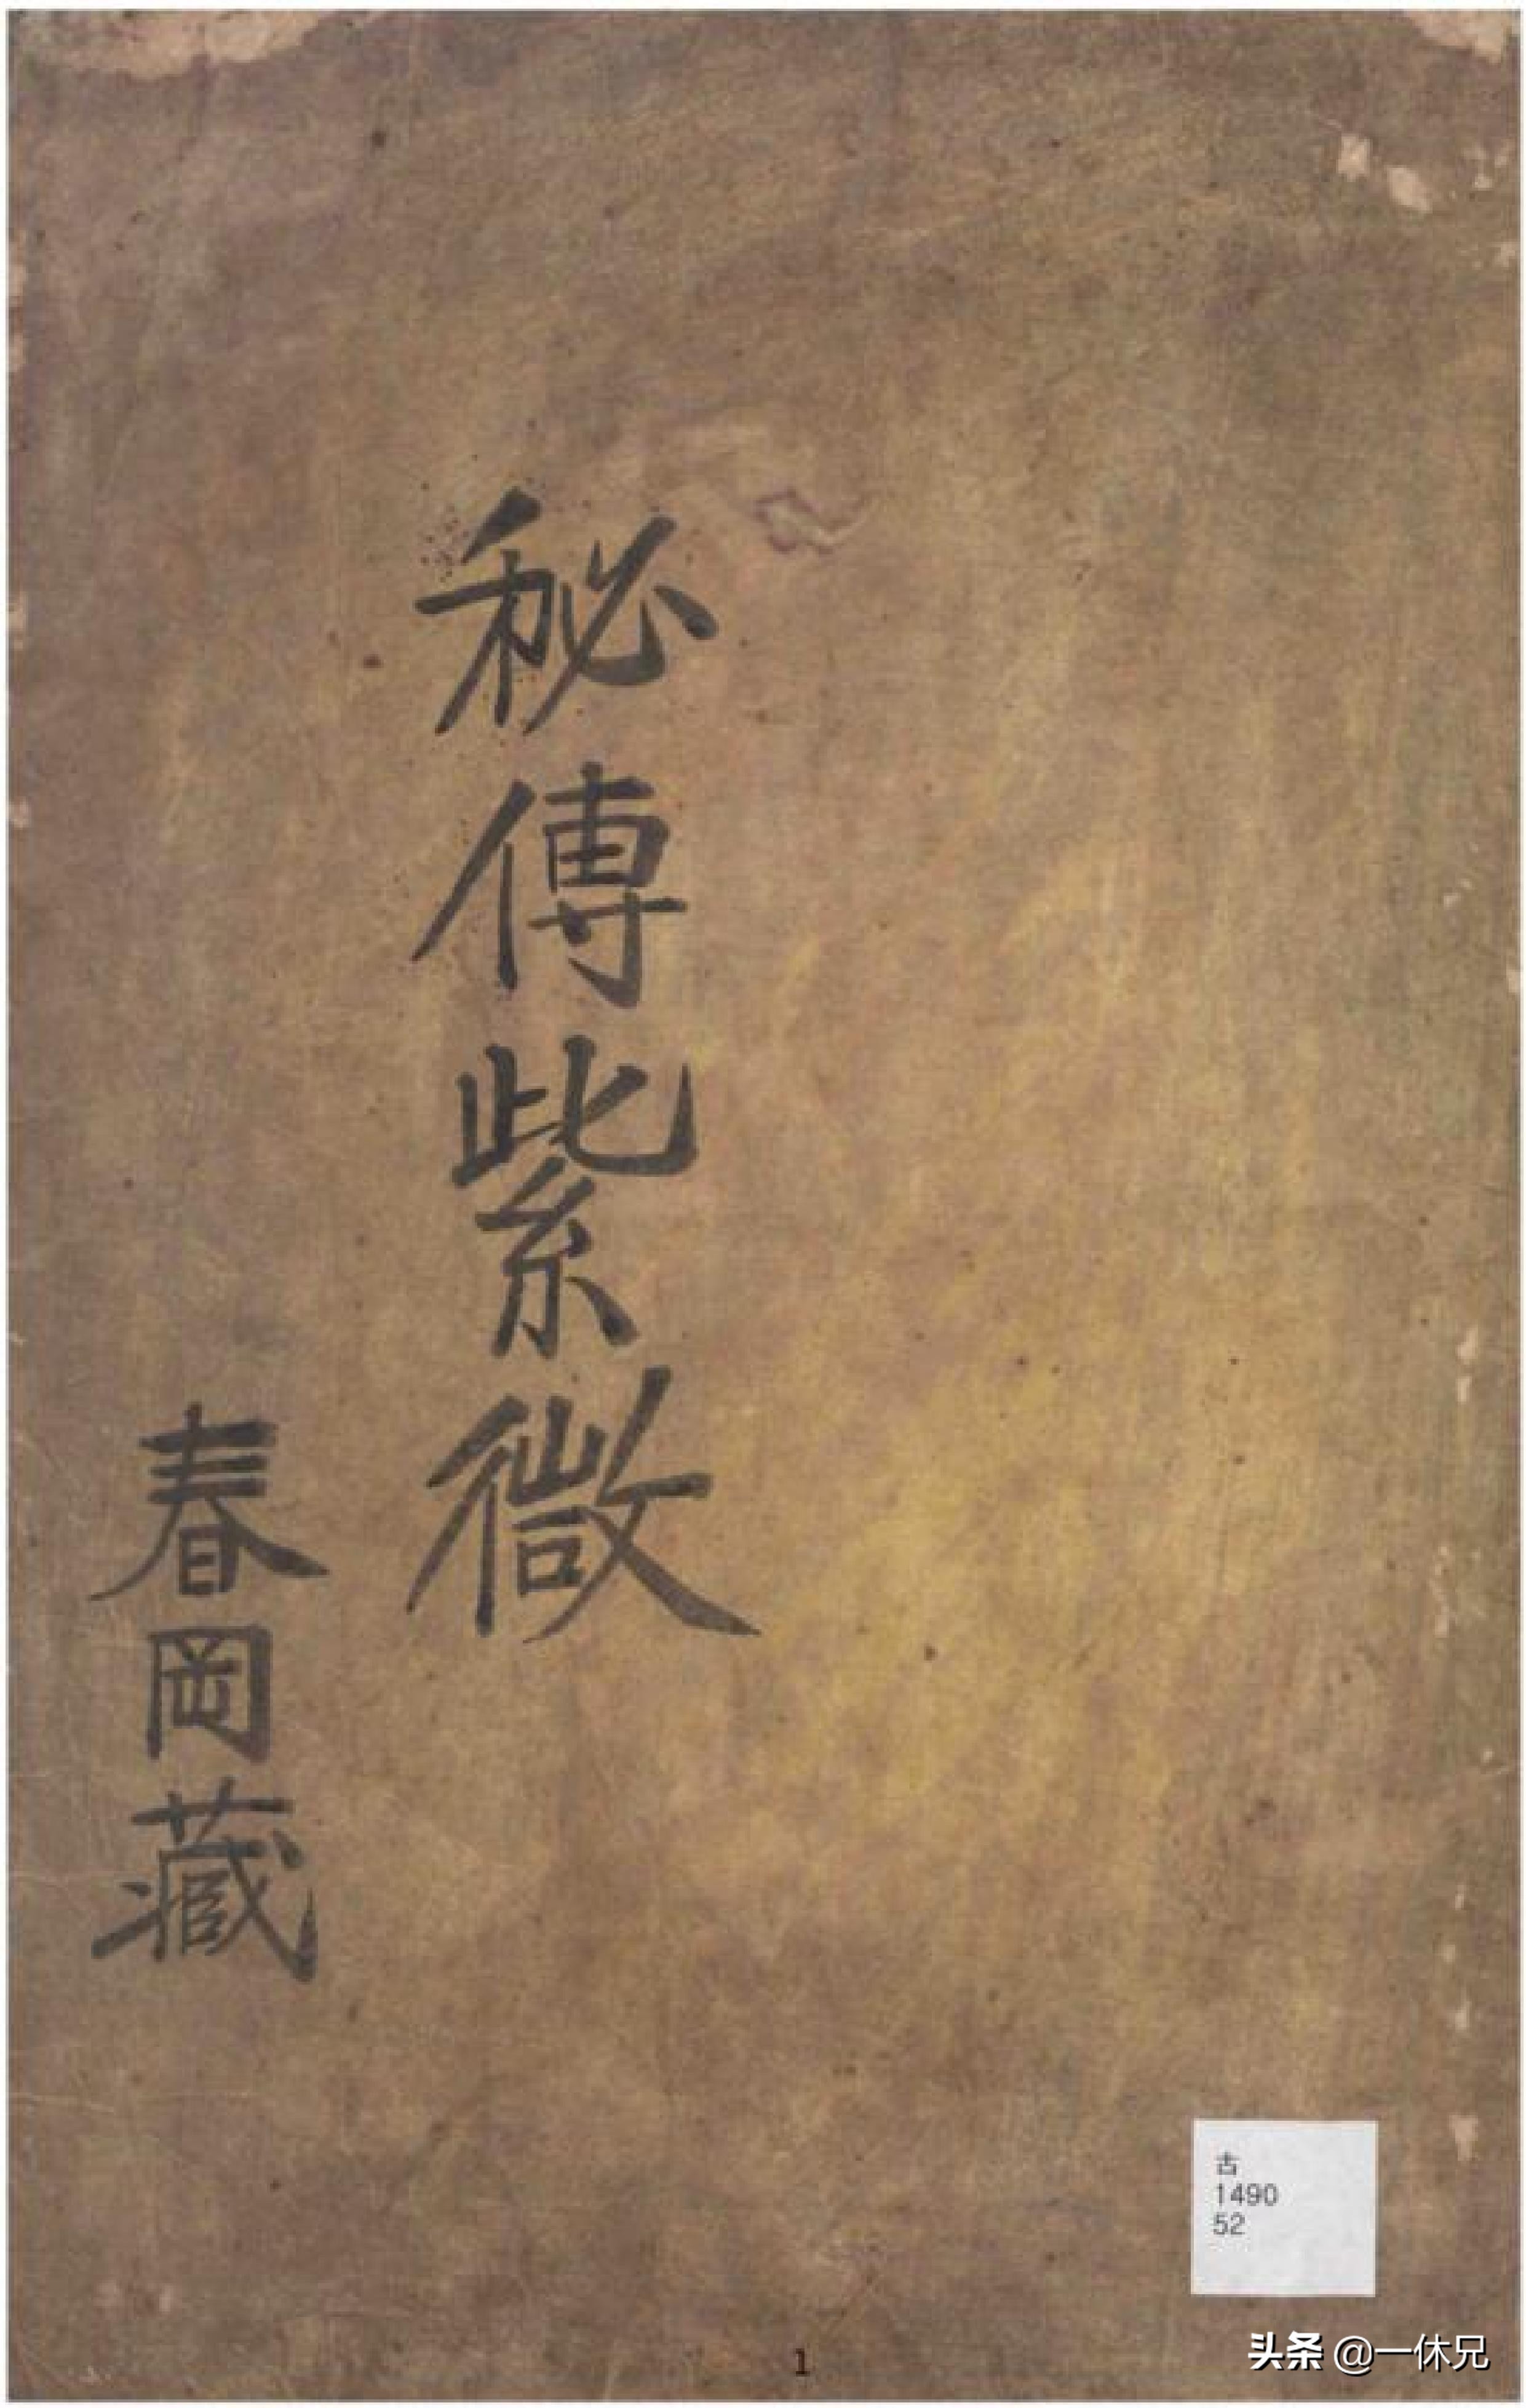 秘傳紫微
春岡藏
古
1490
52
1
头条 @一休兄